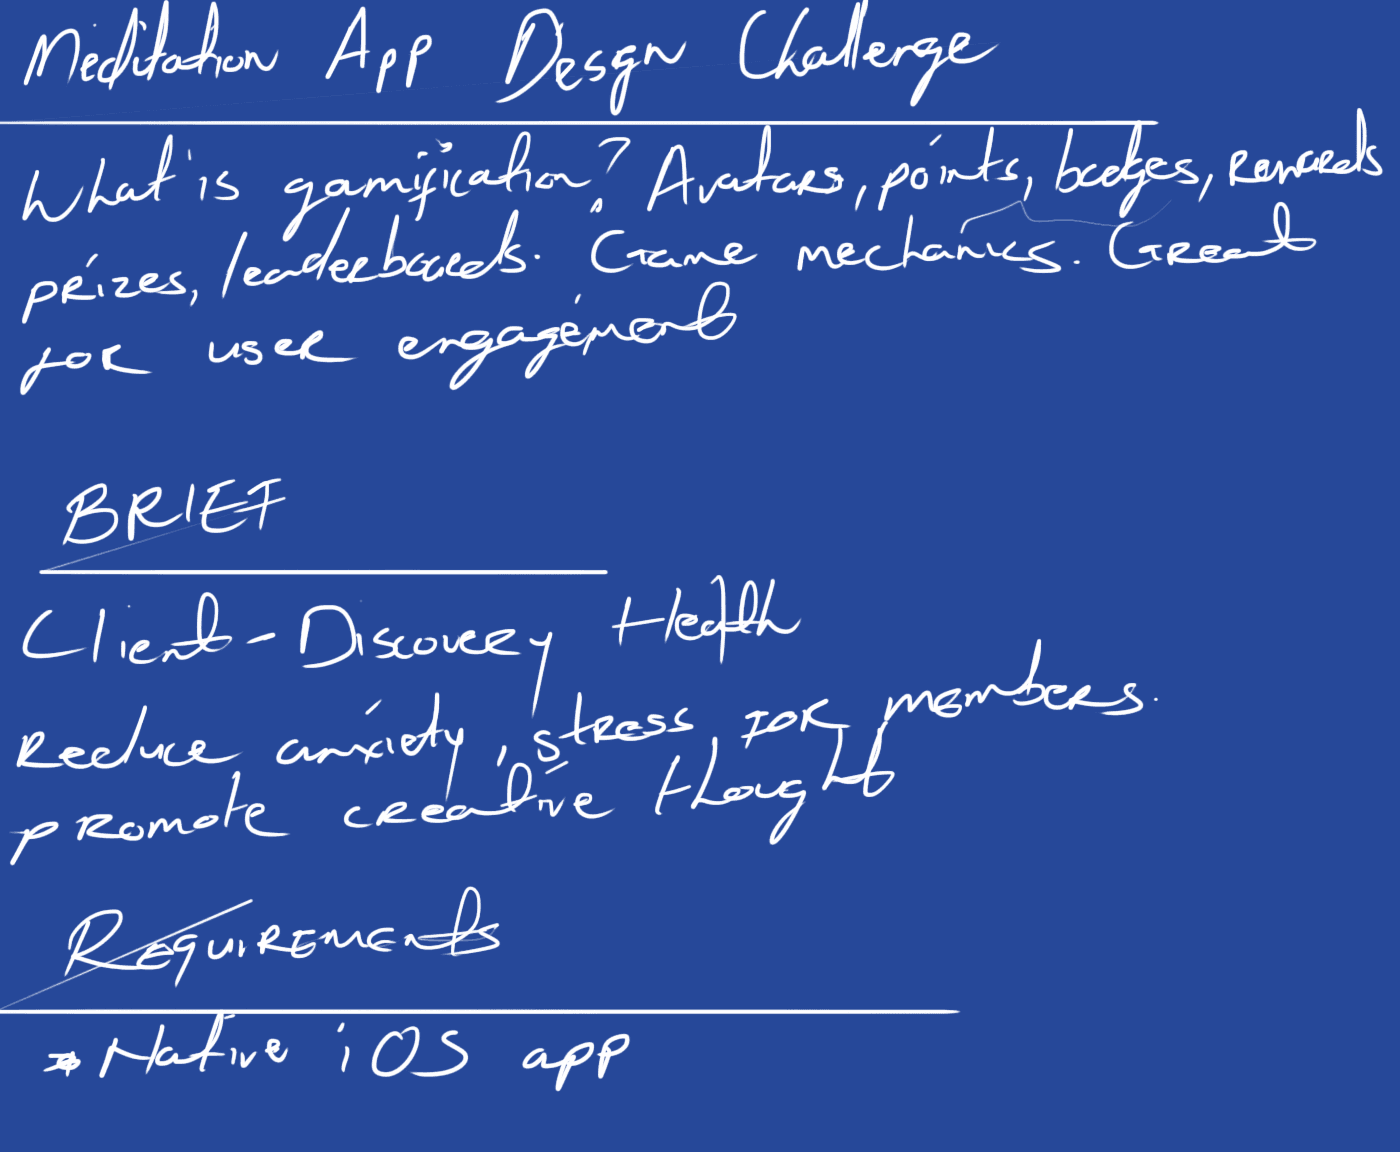 Meditation App Design Challenge
What is gamification? Avatars, points, badges, rewards
prizes, leaderboards. Game mechanics. Great
for user engagement
BRIEF
Client - Discovery Health
Reduce anxiety, stress for members.
promote creative thought
Requirements
* Native iOS app